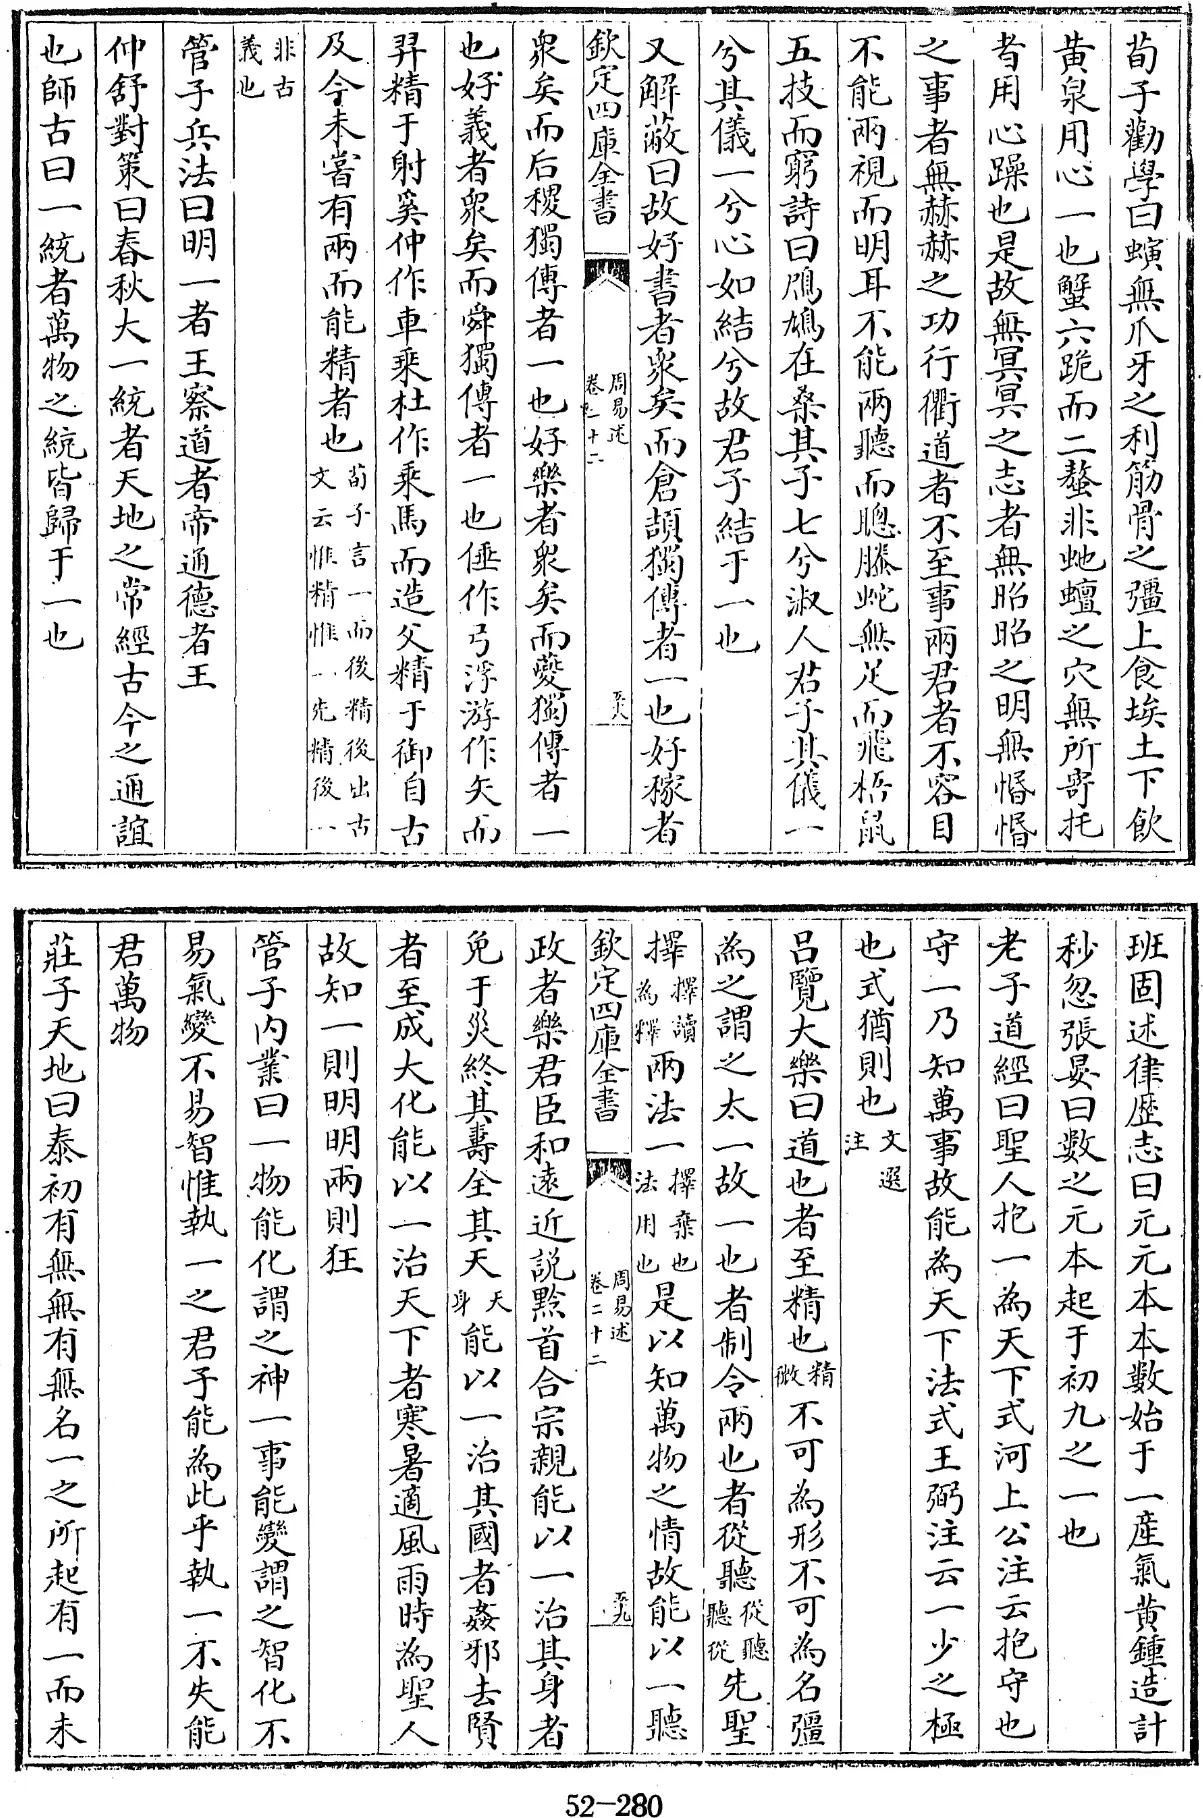 荀子勸學曰螾無爪牙之利筋骨之彊上食埃土下飲
黄泉用心一也蟹六跪而二螯非虵蟺之穴無所寄托
者用心躁也是故無冥冥之志者無昭昭之明無惛惛
之事者無赫赫之功行衢道者不至事兩君者不容目
不能兩視而明耳不能兩聽而聰螣蛇無足而飛梧鼠
五技而窮詩曰鳲鳩在桑其子七兮淑人君子其儀一
兮其儀一兮心如結兮故君子結于一也
又解蔽曰故好書者衆矣而倉頡獨傳者一也好稼者
欽定四庫全書
周易述
卷二十二
至六
衆矣而后稷獨傳者一也好樂者衆矣而夔獨傳者一
也好義者衆矣而舜獨傳者一也倕作弓浮游作矢而
羿精于射奚仲作車乘杜作乘馬而造父精于御自古
及今未嘗有兩而能精者也荀子言一而後精後出古
文云惟精惟一先精後一
非古
義也
管子兵法曰明一者王察道者帝通德者王
仲舒對策曰春秋大一統者天地之常經古今之通誼
也師古曰一統者萬物之統皆歸于一也
班固述律歴志曰元元本本數始于一産氣黄鍾造計
秒忽張晏曰數之元本起于初九之一也
老子道經曰聖人抱一為天下式河上公注云抱守也
守一乃知萬事故能為天下法式王弼注云一少之極
也式猶則也文選
注
吕覽大樂曰道也者至精也精
微不可為形不可為名彊
為之謂之太一故一也者制令兩也者從聽從聽
聽從先聖
擇擇讀
為釋兩法一擇棄也
法用也是以知萬物之情故能以一聽
欽定四庫全書
周易述
卷二十二
至九
政者樂君臣和逺近説黔首合宗親能以一治其身者
免于災終其壽全其天天
身能以一治其國者姦邪去賢
者至成大化能以一治天下者寒暑適風雨時為聖人
故知一則明明兩則狂
管子内業曰一物能化謂之神一事能變謂之智化不
易氣變不易智惟執一之君子能為此乎執一不失能
君萬物
莊子天地曰泰初有無無有無名一之所起有一而未
52-280